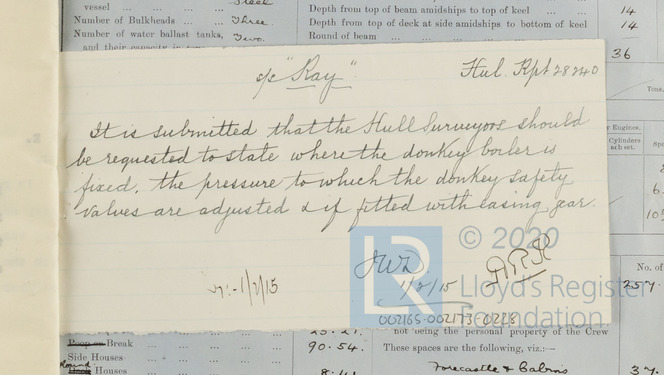 vessel ... ... ... Steel
Number of Bulkheads ... ... Three.
Number of water ballast tanks, Two.
and their capacity in
Depth from top of beam amidships to top of keel 14
Depth from top of deck at side amidships to bottom of keel 14
Round of beam ... ... ... ...
36
Tons,
Engines.
Cylinders
each set.
"Ray"
Hul. Rpt 28240
It is submitted that the Hull Surveyors should
be requested to state where the donkey boiler is
fixed, the pressure to which the donkey safety
valves are adjusted & if fitted with easing gear.
JWD
1/2/15
1/2/15
© 2020
LR
Lloyd's Register
Foundation
002165-002173-0228
No. of
257
Poop or Break
Side Houses
Houses
90.54.
not being the personal property of the Crew
These spaces are the following, viz.:—
Forecastle & Cabins